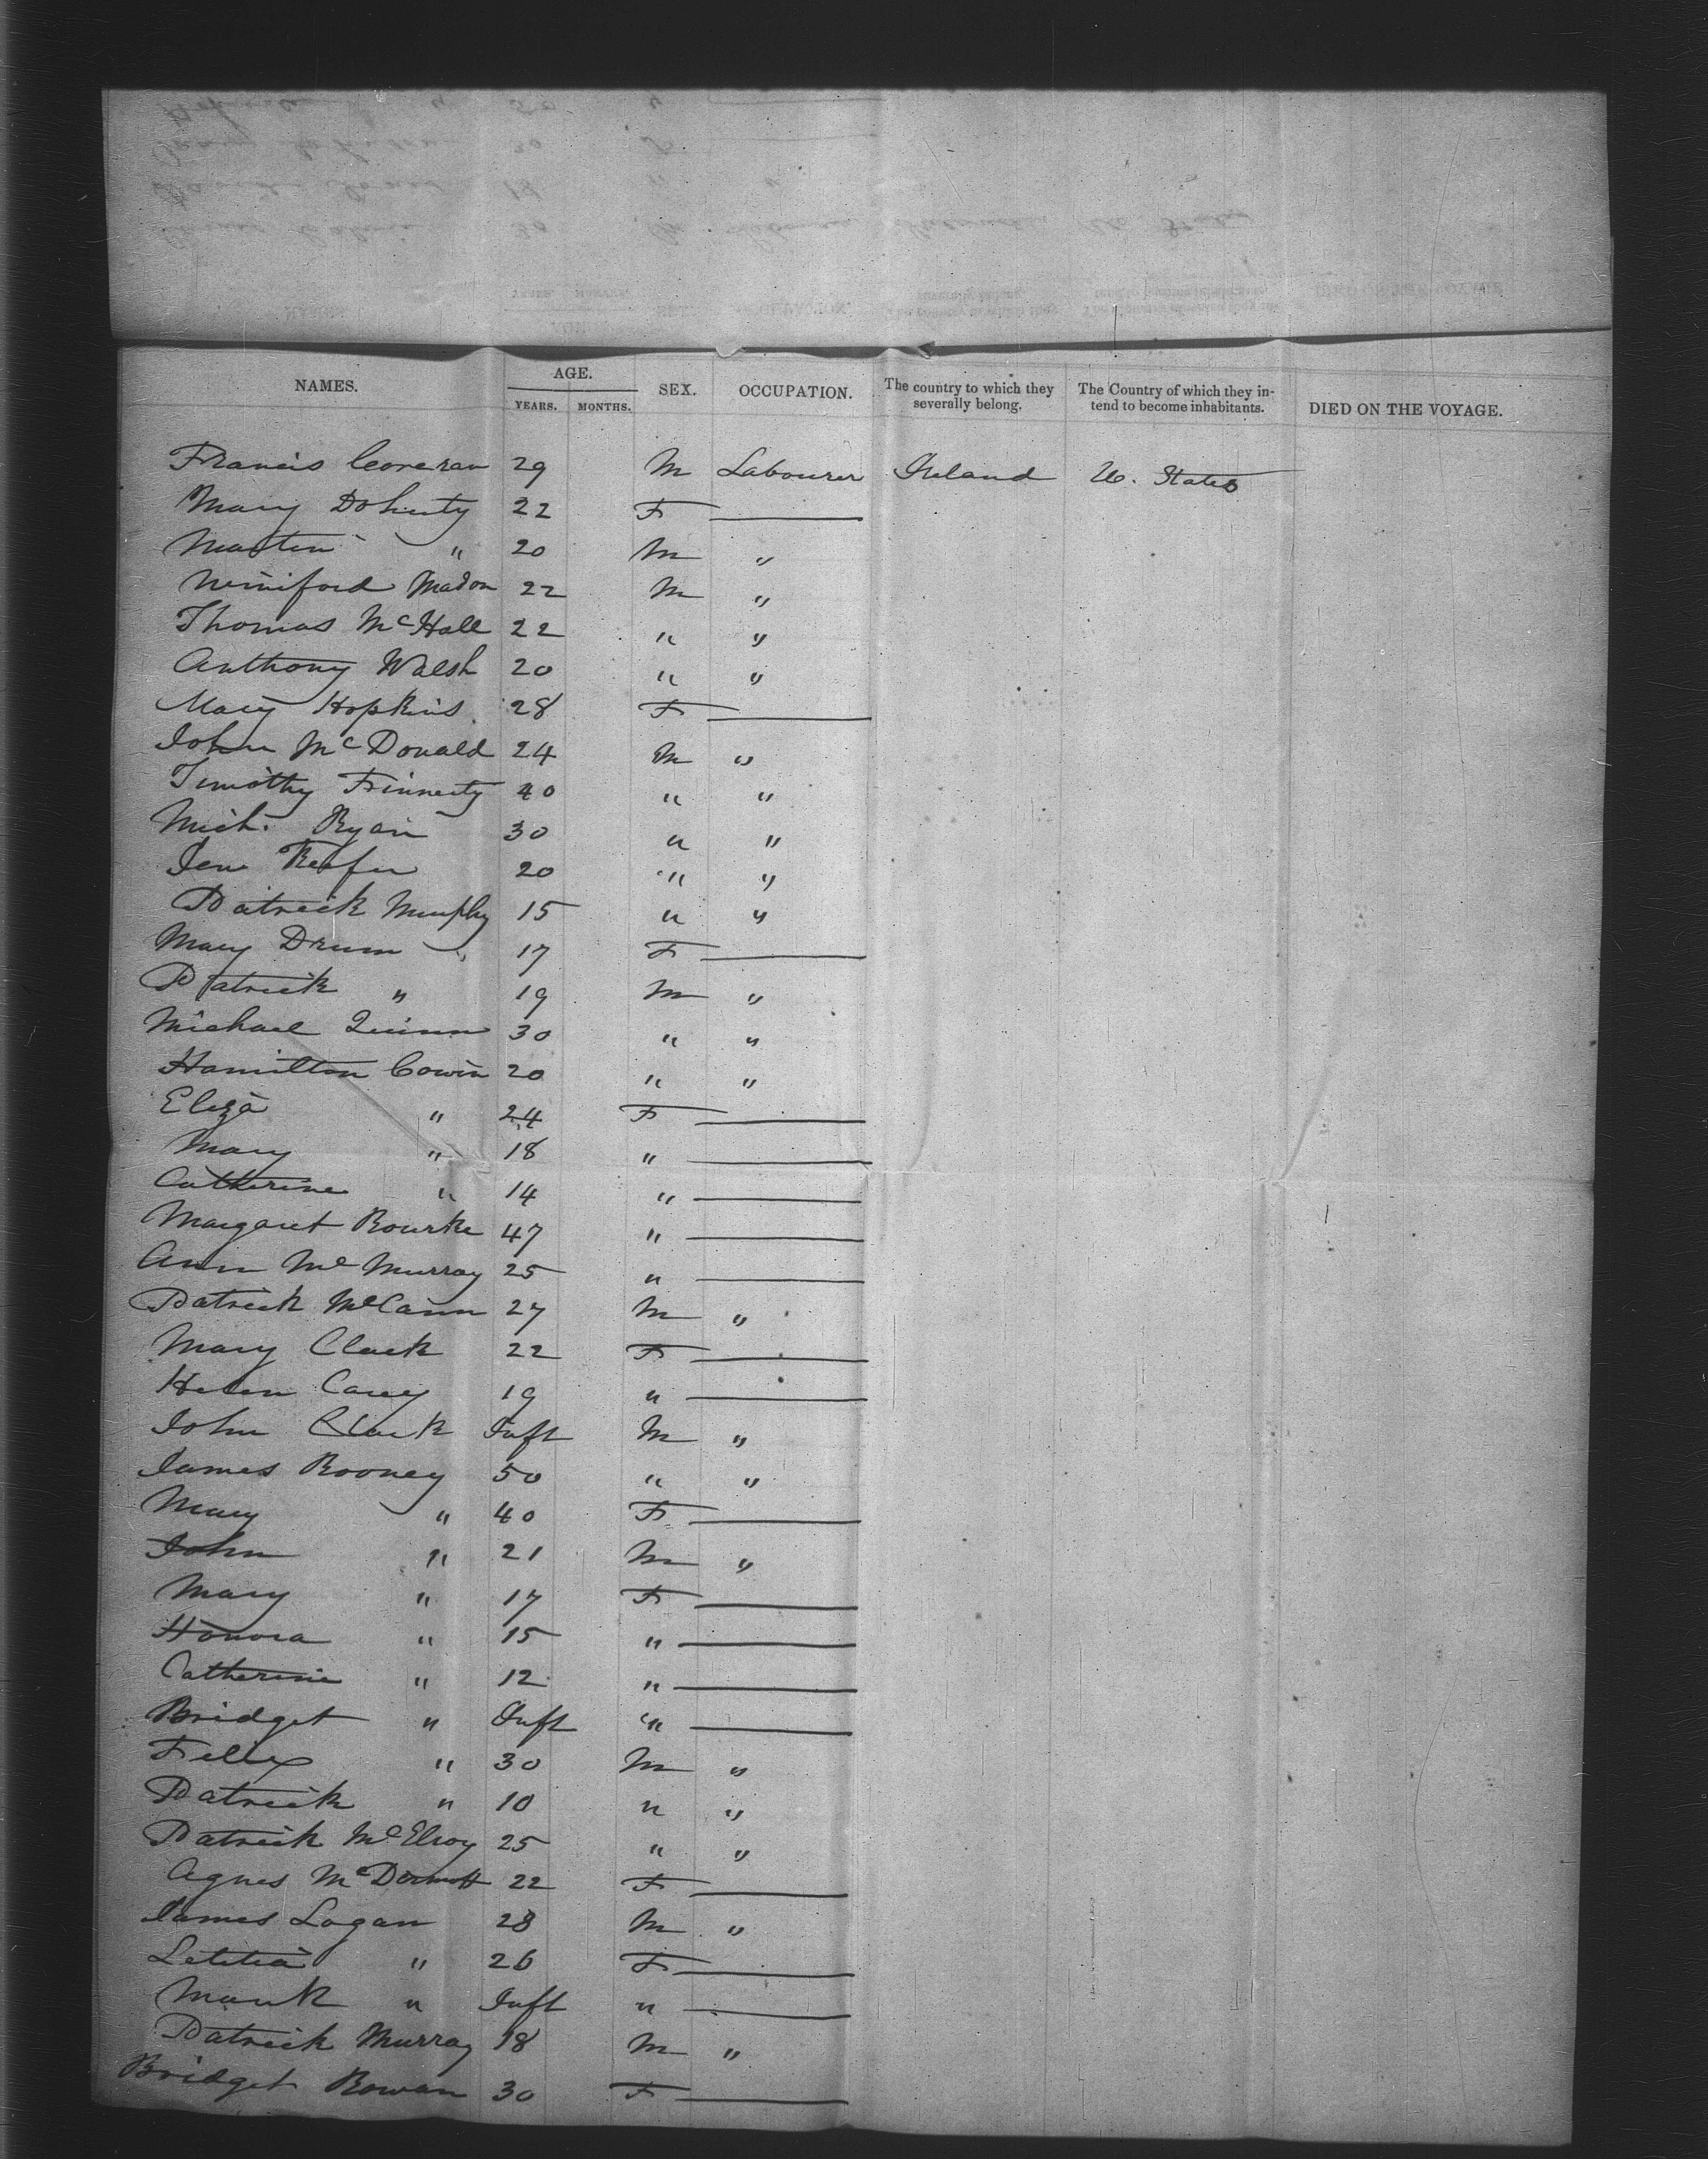 NAMES. AGE. SEX. OCCUPATION. The country to which they severally belong. The Country of which they intend to become inhabitants. DIED ON THE VOYAGE.
YEARS. MONTHS.
Francis Corceran 29 M Labourer Ireland U. States
Mary Doherty 22 F
Martin " 20 M "
Winiford Madon 22 M "
Thomas McHale 22 " "
Anthony Walsh 20 " "
Mary Hopkins 28 F
John McDonald 24 M "
Timothy Finnerty 40 " "
Mich. Ryan 30 " "
20 " "
Patrick Murphy 15 " "
Mary Drum 17 F
Patrick " 19 M "
Michael Quinn 30 " "
Hamilton Cowin 20 " "
Eliza " 24 F
Mary " 18 "
Catherine " 14 "
Margaret Bourke 47 "
Ann McMurray 25 "
Patrick McCann 27 M "
Mary Clark 22 F
Helen Carey 19 "
John Clark Inft M "
James Rooney 50 " "
Mary " 40 F
John " 21 M "
Mary " 17 F
Honora " 15 "
Catherine " 12 "
Bridget " Inft "
Felix " 30 M "
Patrick " 10 " "
Patrick McElroy 25 " "
Agnes McDermott 22 F
James Logan 28 M "
Letitia " 26 F
Mark " Inft "
Patrick Murray 18 M "
Bridget Rowan 30 F